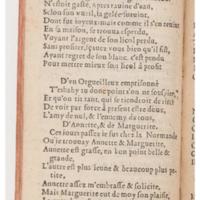 N'estoit gasté, apres ravine d'aau,
Dont fut joyeux mais comme il s'en
En sa maison, se trouva esperdu,
Voyant l'argent de son licol perdu,
Sans profiter, sçavez vous bien qu'il fist,
Ayant regret de son blanc, s'est pendu
Pour mettre mieux son licol à profit
D'vn Orgueilleux emprisonné
T'esbahy tu donc point on ne
Et qu'on tit tant, qui se tiendroit de
De voir par force à present este doux,
L'amy de nul, & l'ennemy de tous,
D'Annette, & de Marguerite.
Ces jours passez ie fus chez la Normande
Ou ie trouvay Annette & Marguerite,
Annette est grasse, en bon point belle &
grande,
L'autre est plus jeune & beaucoup plus pe-
tite,
Annette assez m'embrasse & solicite,
Mais Marguerite eut de moy son plaisir,